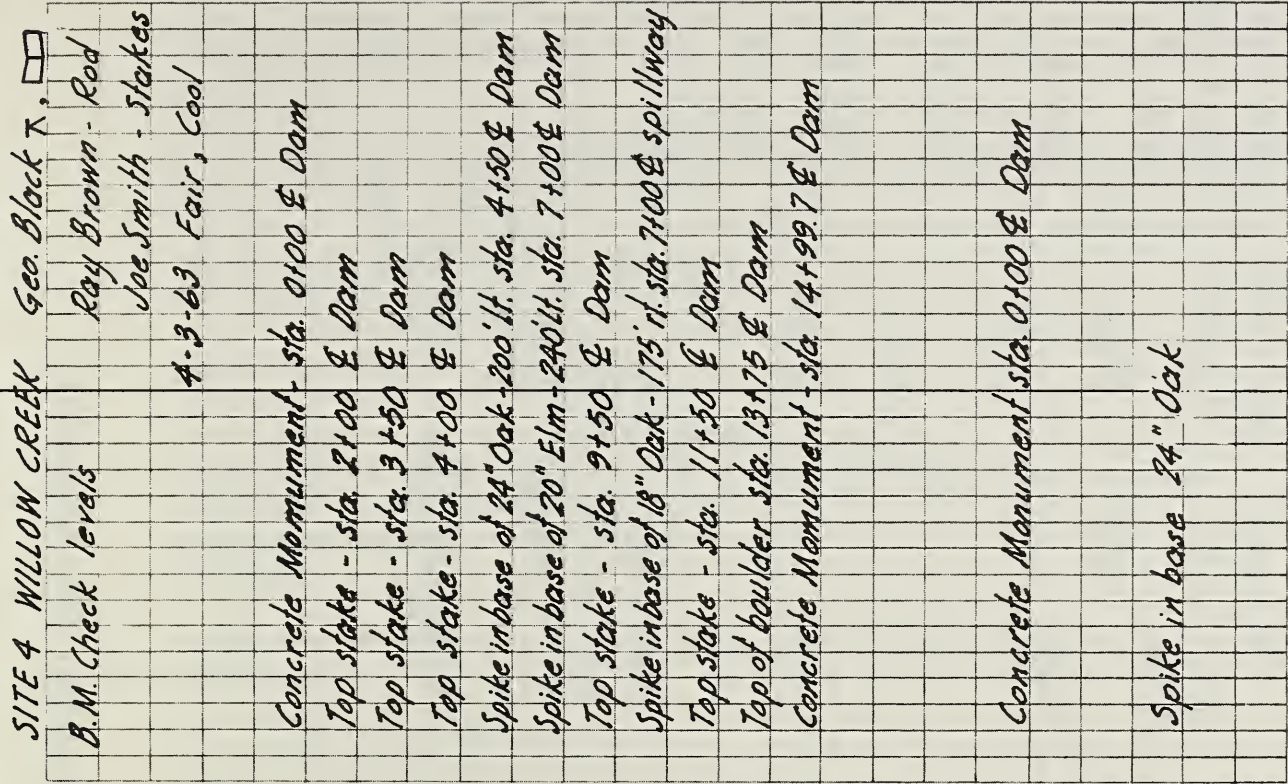 SITE 4 WILLOW CREEK Geo. Black ⊼, ▭
B.M. Check levels Ray Brown - Rod
Joe Smith - Stakes
4-3-63 Fair, Cool
Concrete Momument - sta. 0+00 ℄ Dam
Top stake - sta. 2+00 ℄ Dam
Top stake - sta. 3+50 ℄ Dam
Top stake - sta. 4+00 ℄ Dam
Spike in base of 24" Oak - 200' lt. sta. 4+50 ℄ Dam
Spike in base of 20" Elm - 240' lt. sta. 7+00 ℄ Dam
Top stake - sta. 9+50 ℄ Dam
Spike in base of 18" Oak - 175' rt. sta. 7+00 ℄ spillway
Top stake - sta. 11+50 ℄ Dam
Top of boulder sta. 13+75 ℄ Dam
Concrete Momument - sta. 14+99.7 ℄ Dam
Concrete Monument sta. 0+00 ℄ Dam
Spike in base 24" Oak